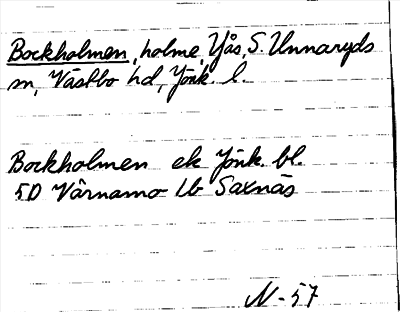 Bockholmen, holme, Yås, S. Unnaryds
sn, Västbo hd, Jönk. l.
Bockholmen ek Jönk. bl.
5D Värnamo 1b Saxnäs
N-57